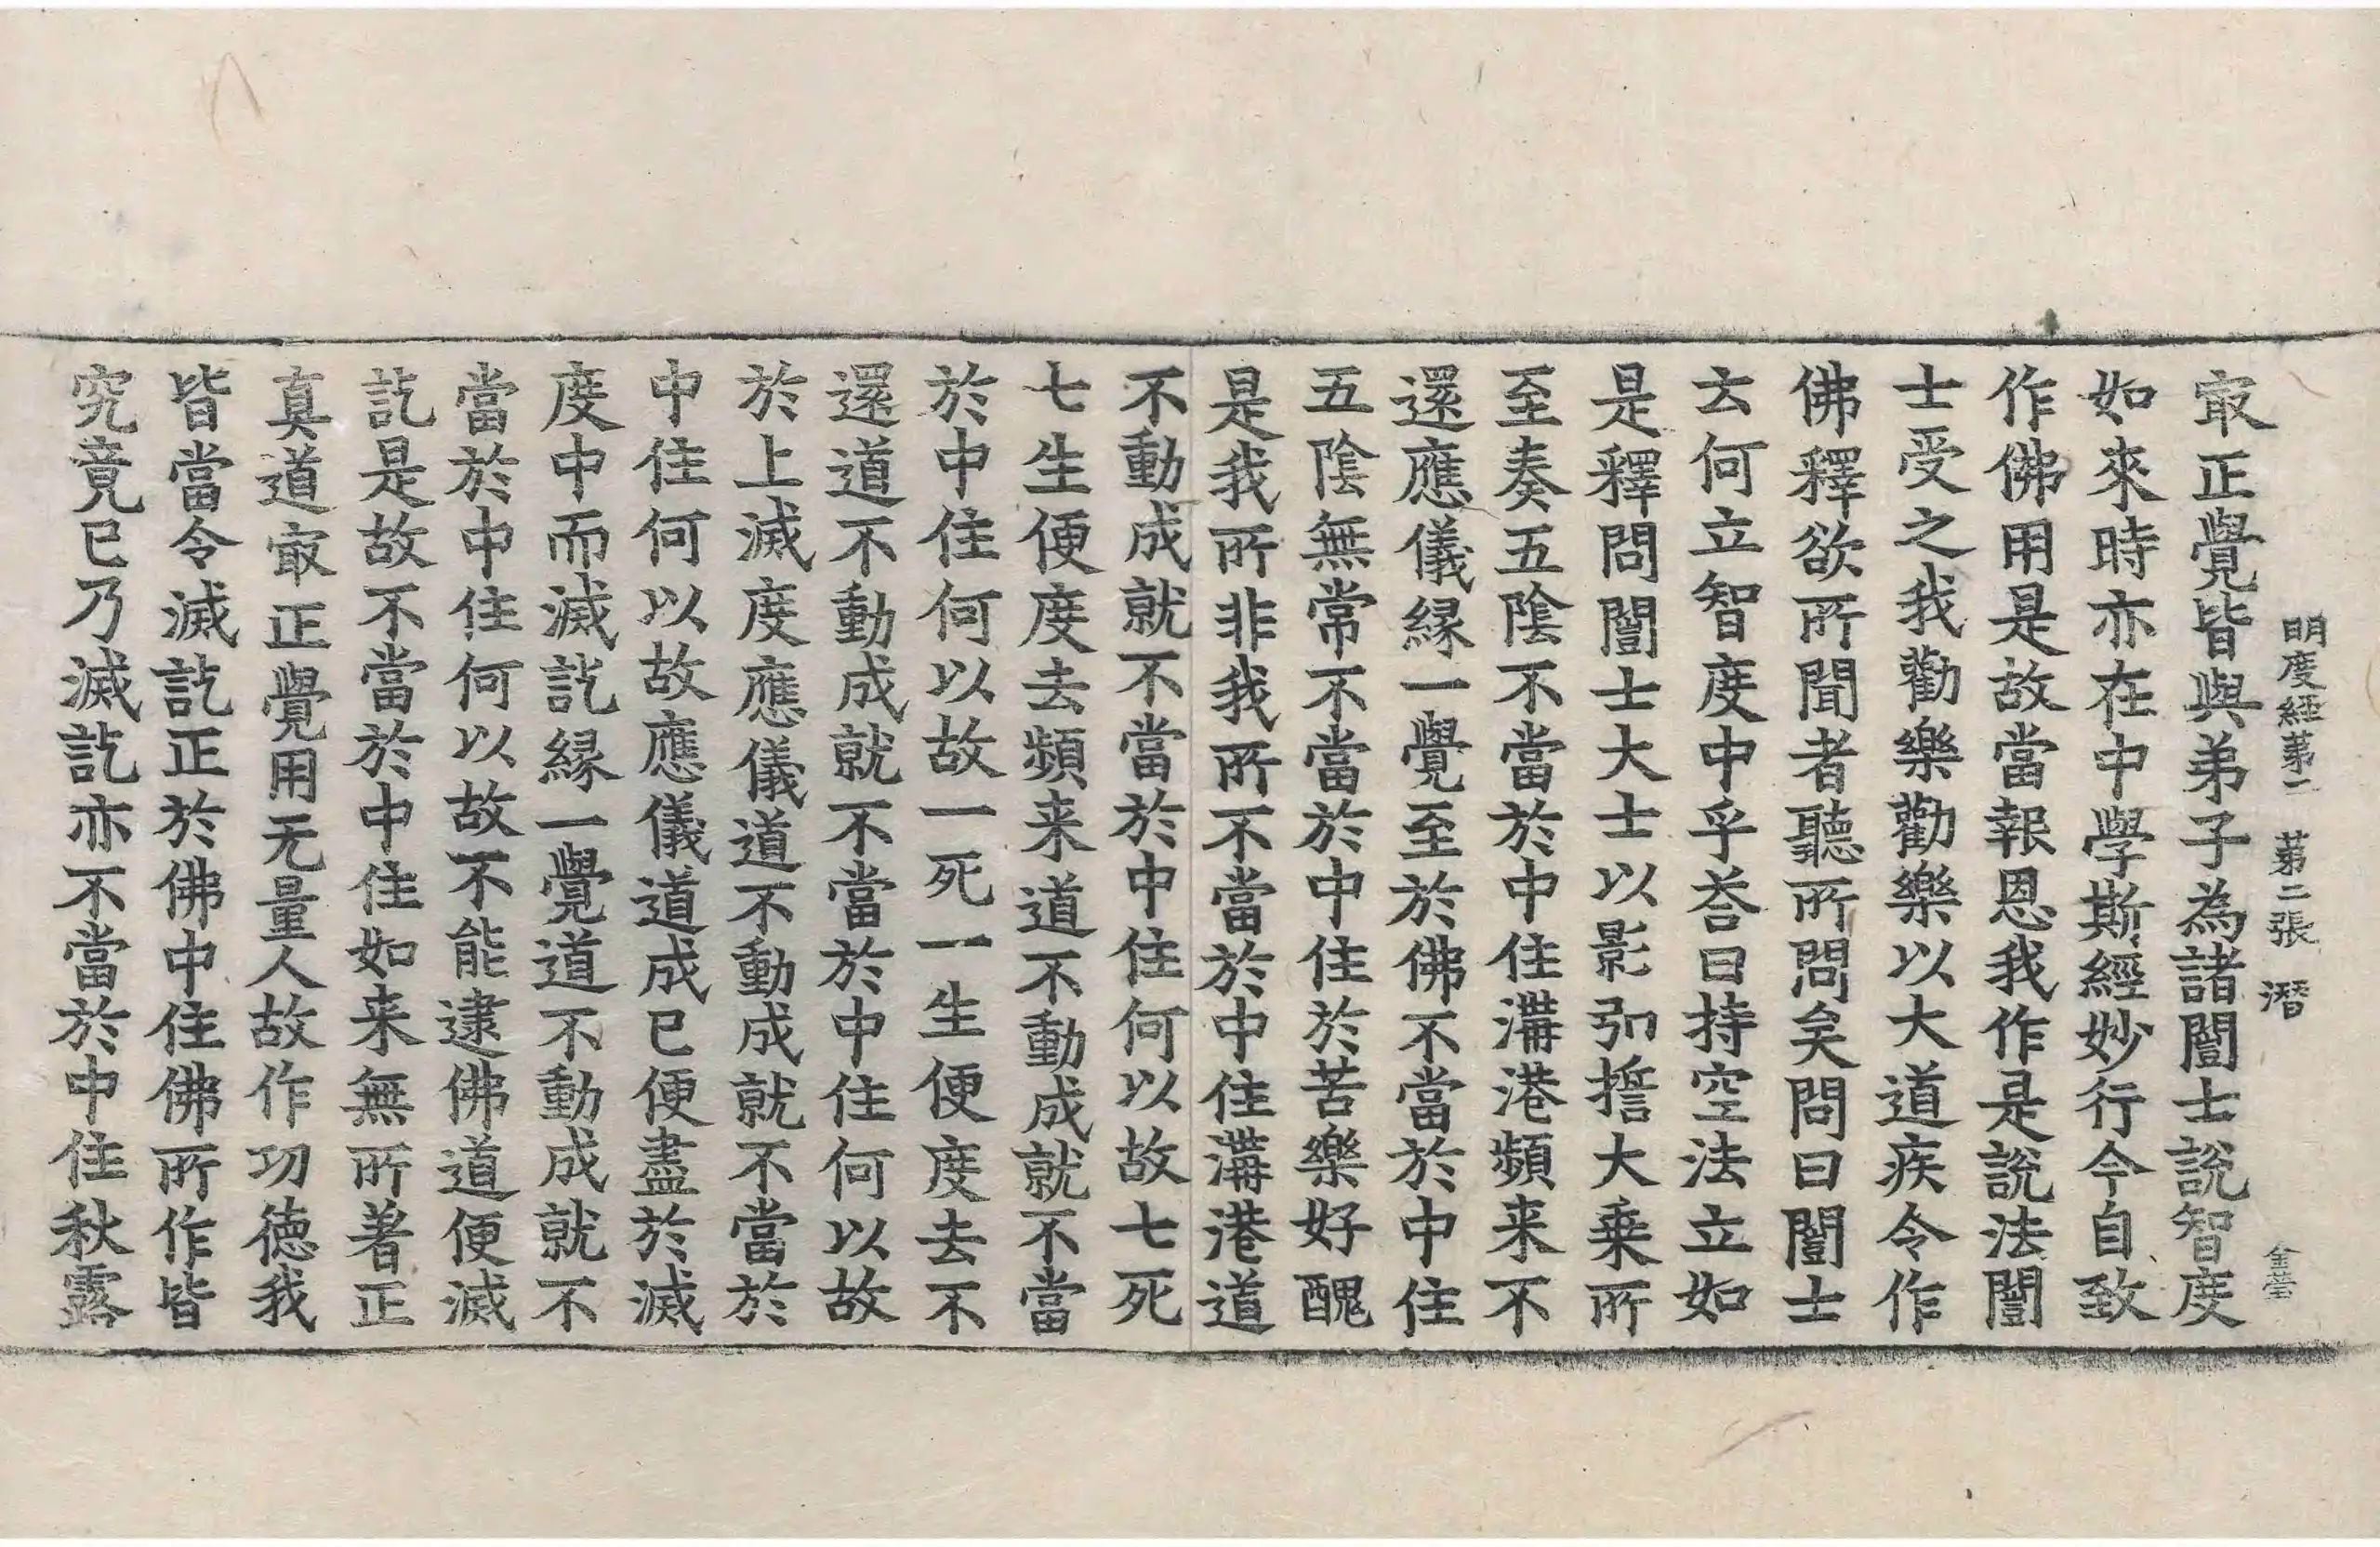 明度經第二　第二張　潛　金菩
㝡正覺皆與弟子為諸闓士說智度
如來時亦在中學斯經妙行今自致
作佛用是故當報恩我作是說法闓
士受之我勸樂勸樂以大道疾令作
佛釋欲所聞者聽所問矣問曰闓士
云何立智度中乎荅曰持空法立如
是釋問闓士大士以影弘誓大乘所
至奏五陰不當於中住溝港頻来不
還應儀緣一覺至於佛不當於中住
五陰無常不當於中住於苦樂好醜
是我所非我所不當於中住溝港道
不動成就不當於中住何以故七死
七生便度去頻来道不動成就不當
於中住何以故一死一生便度去不
還道不動成就不當於中住何以故
於上滅度應儀道不動成就不當於
中住何以故應儀道成已便盡於滅
度中而滅訖緣一覺道不動成就不
當於中住何以故不能逮佛道便滅
訖是故不當於中住如来無所著正
真道㝡正覺用无量人故作功德我
皆當令滅訖正於佛中住佛所作皆
究竟已乃滅訖亦不當於中住秋露